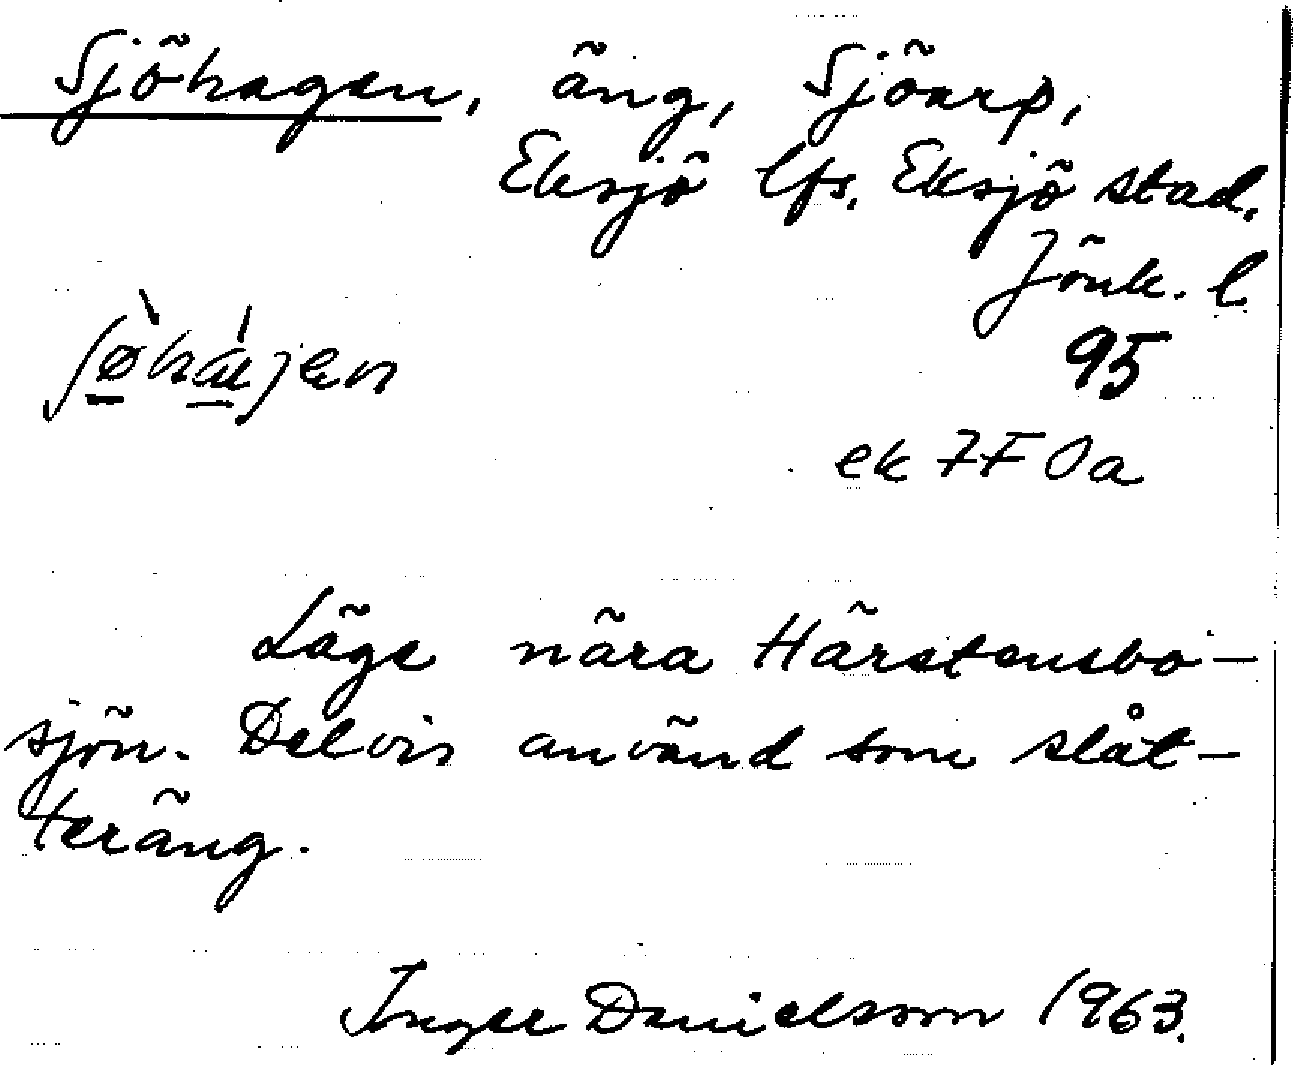 Sjöhagen, äng, Sjöarp,
Eksjö lfs. Eksjö stad.
Jönk. l
ʃø̀hájen
95
ek 7F 0a
Läge nära Härstensbo-
sjön. Delvis använd som slåt-
teräng.
Inger Danielsson 1963.